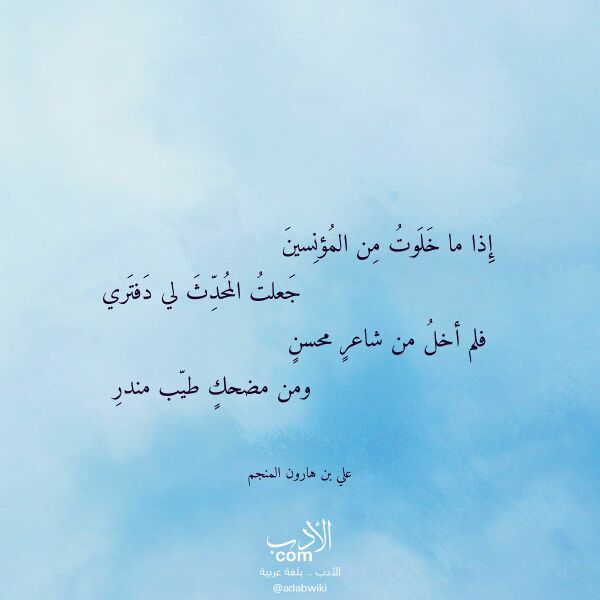 إِذا ما خَلَوتُ مِن المُؤنِسينَ
جَعلتُ المُحدِّثَ لي دَفتَري
فلم أخلُ من شاعرٍ محسنٍ
ومن مضحكٍ طيّب مندرِ
علي بن هارون المنجم
الأدب
com
الأدب .. بلغة عربية
@adabwiki